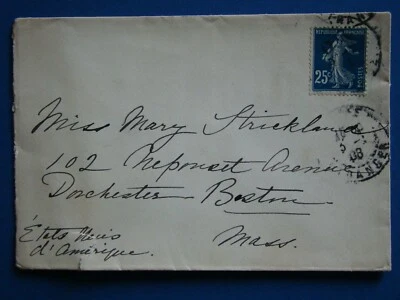 RÉPUBLIQUE FRANÇAISE
25c
POSTES
Miss Mary Strickland
102 Neponset Avenue
Dorchester Boston
Mass.
États Unis
d'Amérique.